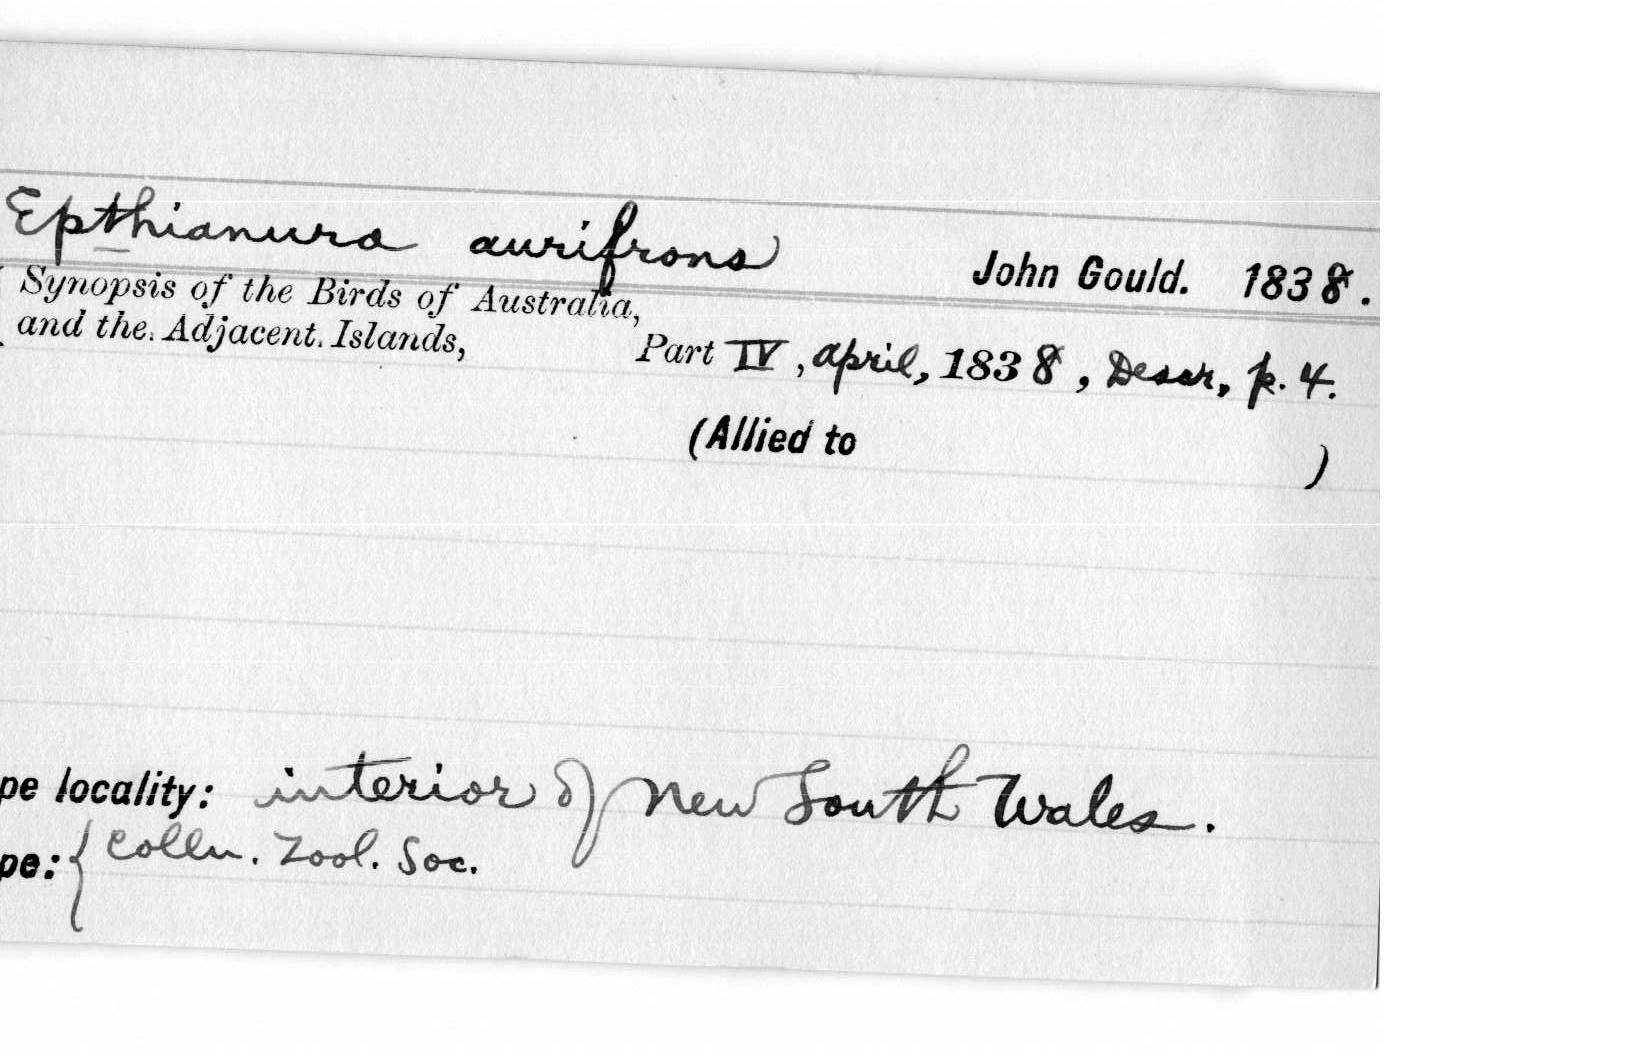 Epthianura aurifrons
John Gould. 1838.
Synopsis of the Birds of Australia,
and the Adjacent Islands,
Part IV, april, 1838, Descr, p. 4.
(Allied to )
pe locality: interior of New South Wales.
pe: { Colln. Zool. Soc.